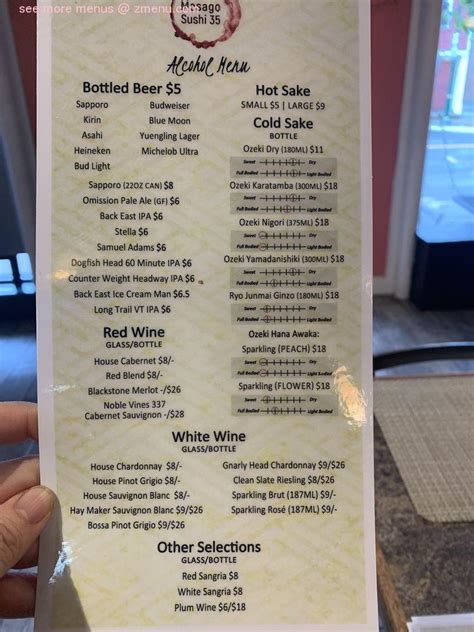 see more menus @ zmenu.com
Masago
Sushi 35
Alcohol Menu
Bottled Beer $5
Sapporo
Kirin
Asahi
Heineken
Bud Light
Budweiser
Blue Moon
Yuengling Lager
Michelob Ultra
Sapporo (22OZ CAN) $8
Omission Pale Ale (GF) $6
Back East IPA $6
Stella $6
Samuel Adams $6
Dogfish Head 60 Minute IPA $6
Counter Weight Headway IPA $6
Back East Ice Cream Man $6.5
Long Trail VT IPA $6
Hot Sake
SMALL $5 | LARGE $9
Cold Sake
BOTTLE
Ozeki Dry (180ML) $11
Sweet Dry
Full Bodied Light Bodied
Ozeki Karatamba (300ML) $18
Sweet Dry
Full Bodied Light Bodied
Ozeki Nigori (375ML) $18
Sweet Dry
Full Bodied Light Bodied
Ozeki Yamadanishiki (300ML) $18
Sweet Dry
Full Bodied Light Bodied
Ryo Junmai Ginzo (180ML) $18
Sweet Dry
Full Bodied Light Bodied
Ozeki Hana Awaka:
Sparkling (PEACH) $18
Sweet Dry
Full Bodied Light Bodied
Sparkling (FLOWER) $18
Sweet Dry
Full Bodied Light Bodied
Red Wine
GLASS/BOTTLE
House Cabernet $8/-
Red Blend $8/-
Blackstone Merlot -/$26
Noble Vines 337
Cabernet Sauvignon -/$28
White Wine
GLASS/BOTTLE
House Chardonnay $8/-
House Pinot Grigio $8/-
House Sauvignon Blanc $8/-
Hay Maker Sauvignon Blanc $9/$26
Bossa Pinot Grigio $9/$26
Gnarly Head Chardonnay $9/$26
Clean Slate Riesling $8/$26
Sparkling Brut (187ML) $9/-
Sparkling Rosé (187ML) $9/-
Other Selections
GLASS/BOTTLE
Red Sangria $8
White Sangria $8
Plum Wine $6/$18